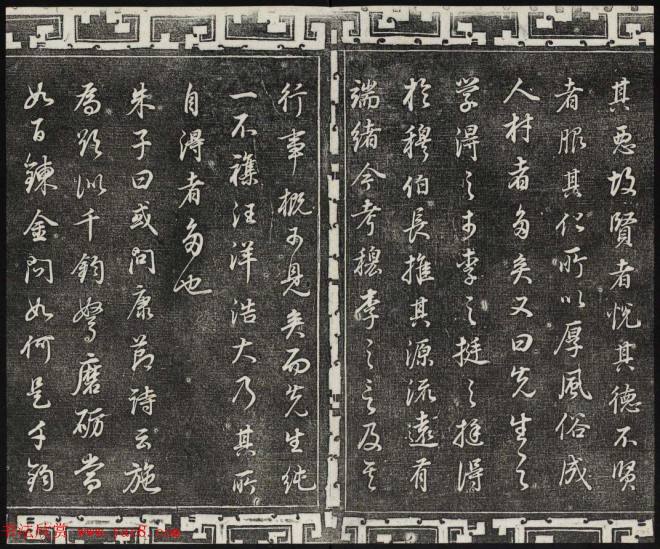 其惡故賢者悅其德不賢
者服其化所以厚風俗成
人材者多矣又曰先生之
學得之於李之挺之挺得
於穆伯長推其源流遠有
端緒今考穆李之言及其
行事概可見矣而先生純
一不雜汪洋浩大乃其所
自得者多也
朱子曰或問康節詩云施
為欲似千鈞弩磨礪當
如百鍊金問如何是千鈞
书法欣赏 www.yac8.com